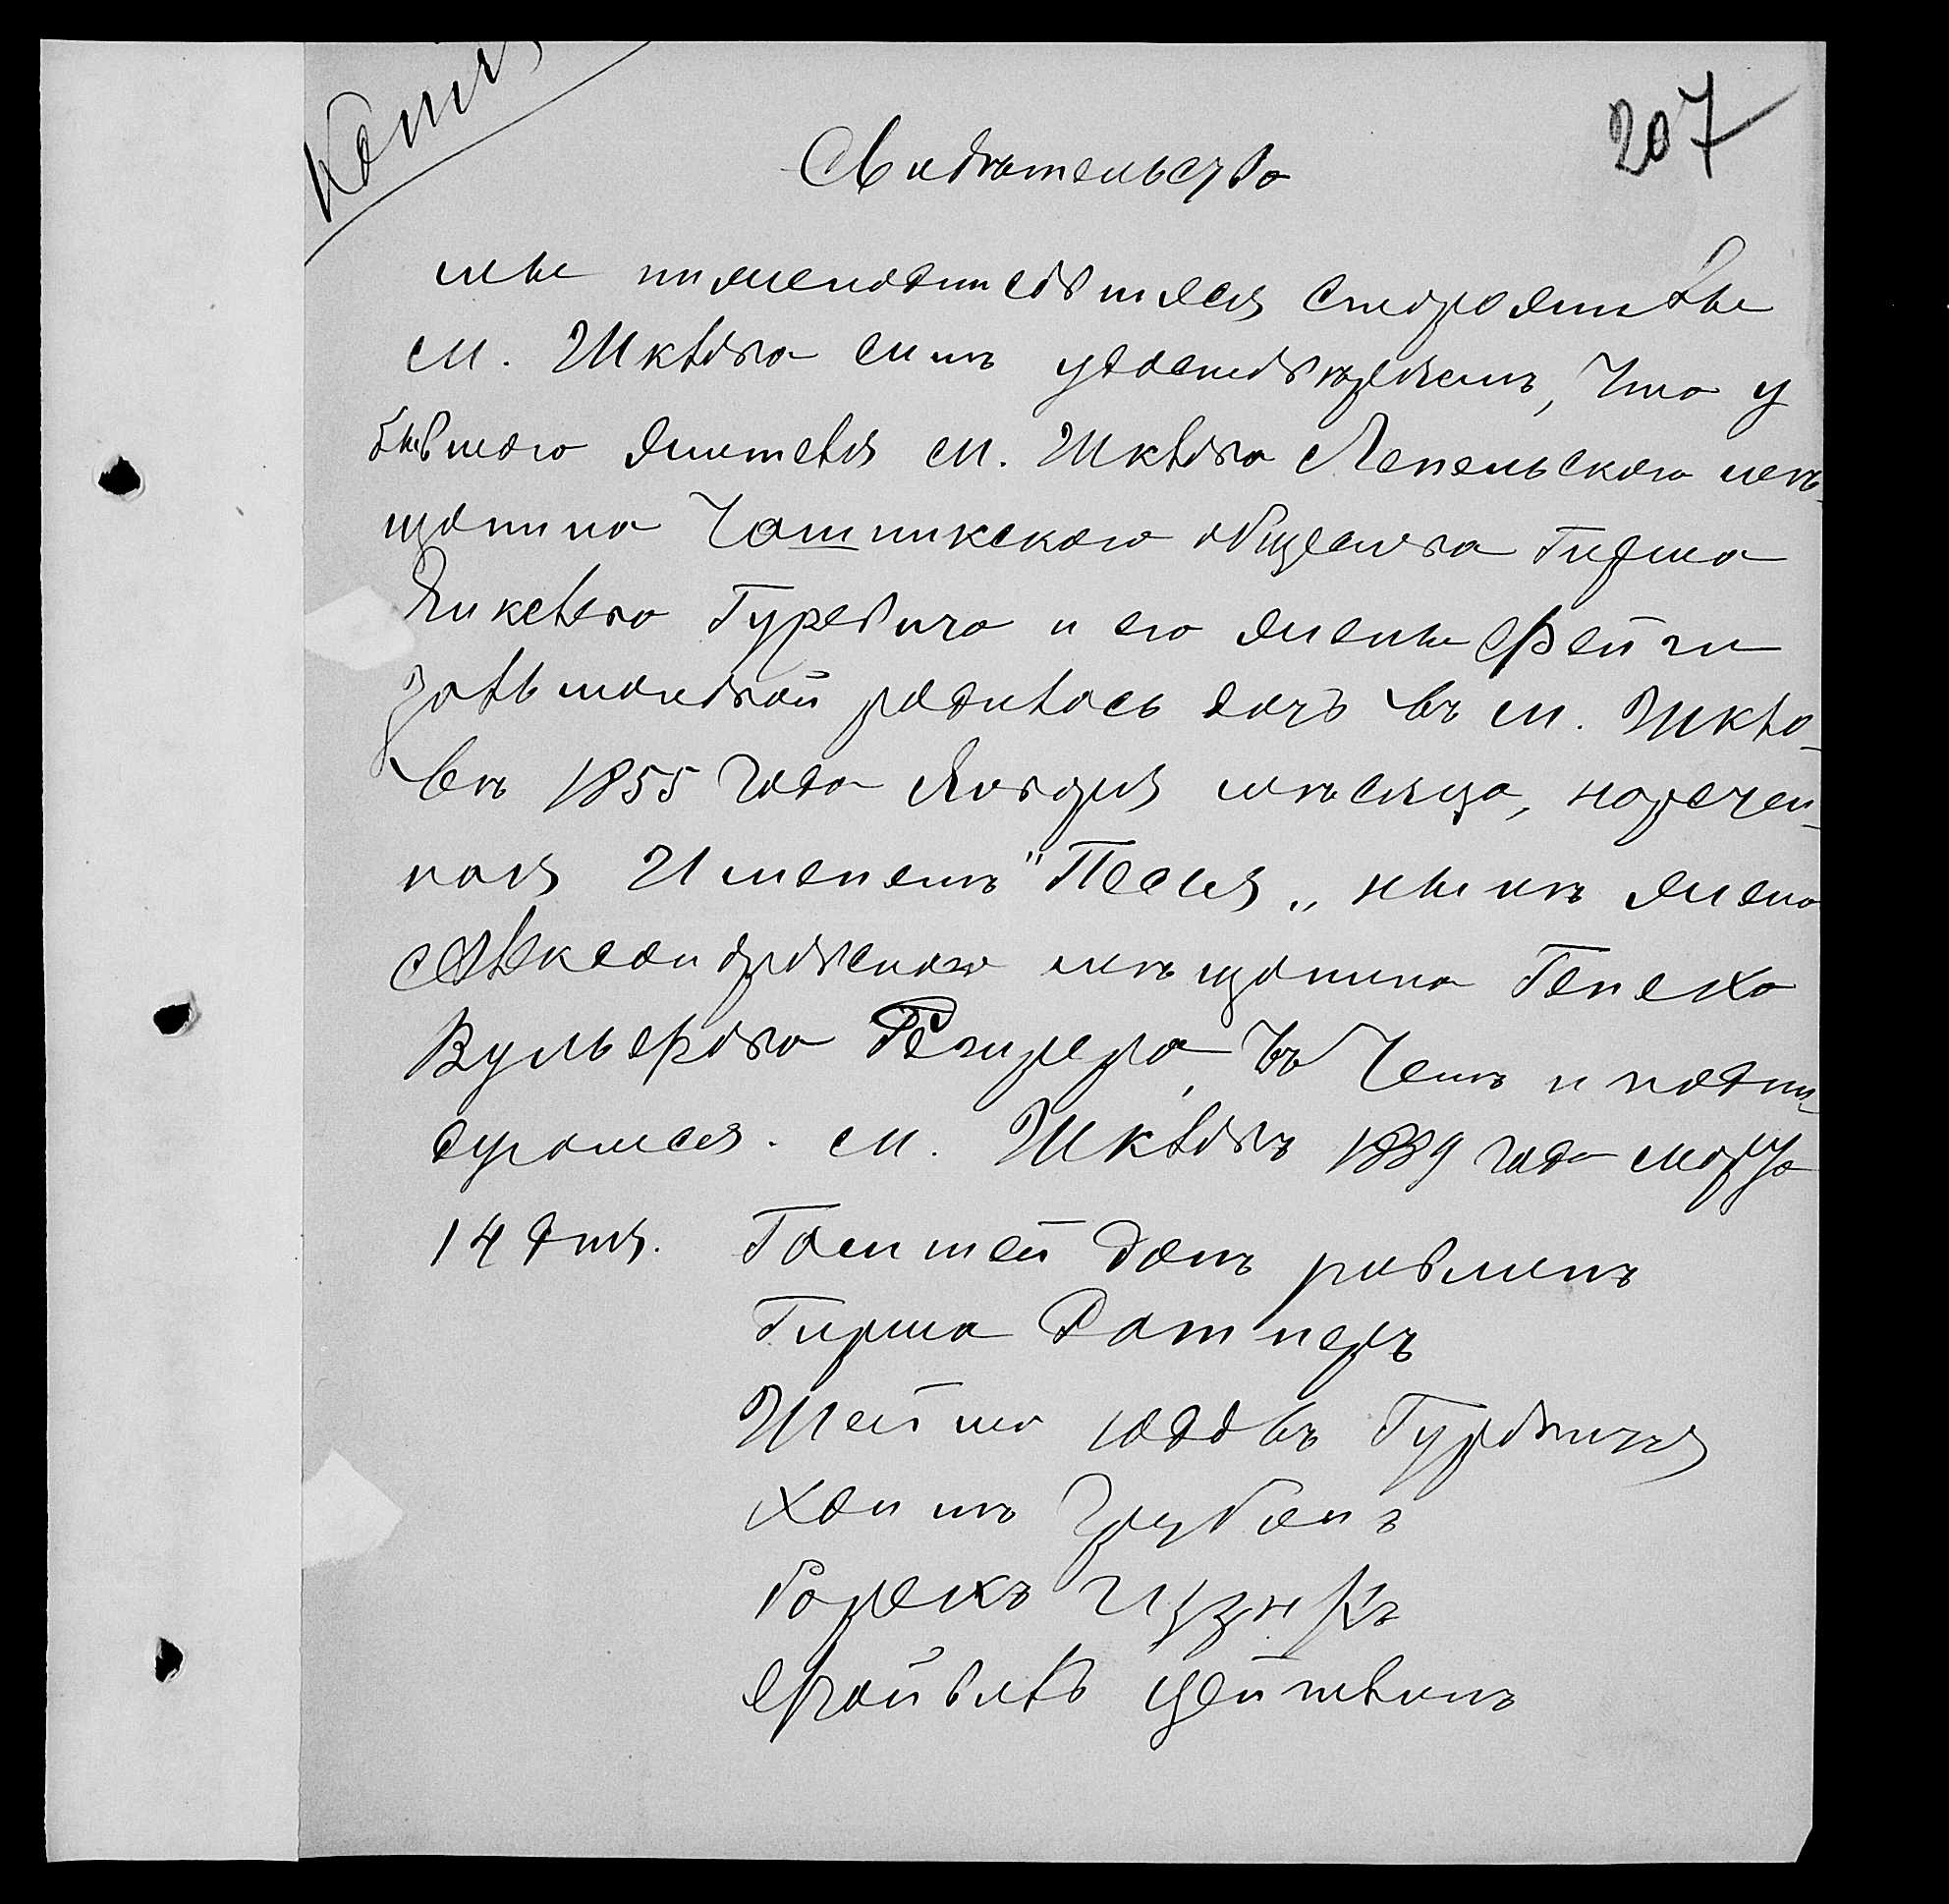 Копія
207
Свидѣтельство
мы нижеподписавшіеся старожилы
м. Шклова симъ удостовѣряемъ, что у
бывшаго жителя м. Шклова Лепельскаго мѣ-
щанина Чашникскаго общества Гирша
Янкелева Гуревича и его жены Фейги
Зальмановой родилась дочь въ м. Шкло-
вѣ 1855 года Января мѣсяца, наречен-
ная Именемъ "Песня„ нынѣ жена
Александровскаго мѣщанина Генеха
Вульфова въ чемъ и подпи-
суемся. м. Шкловъ 1889 года марта
14 дня.
Гирша Ратнеръ
Шейма
Хаимъ
Борехъ
Файвелъ Цейтлинъ